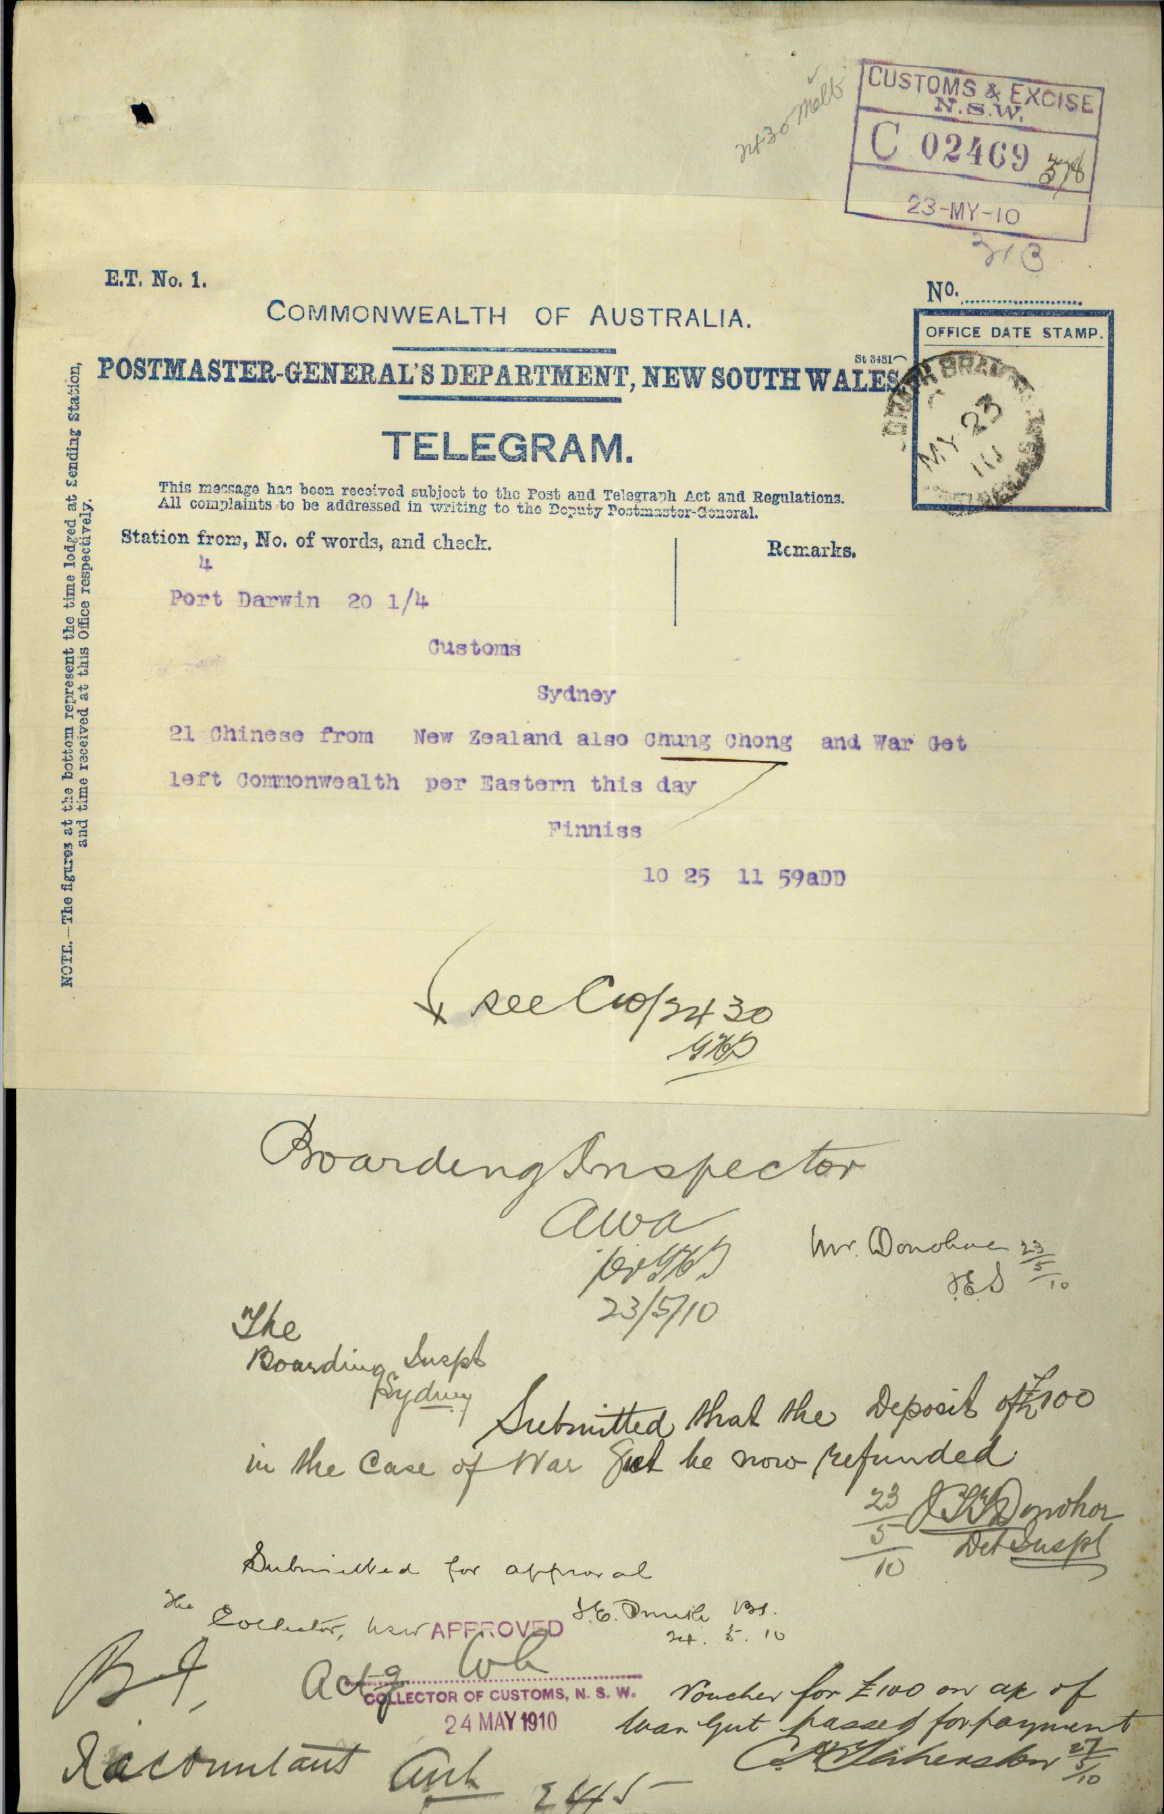 2430 Melb
CUSTOMS & EXCISE
N.S.W.
C 02469 378
23-MY-10
E.T. No. 1.
COMMONWEALTH OF AUSTRALIA.
No.
OFFICE DATE STAMP.
St 3481
POSTMASTER-GENERAL'S DEPARTMENT, NEW SOUTH WALES.
MY 23
10
TELEGRAM.
This message has been received subject to the Post and Telegraph Act and Regulations.
All complaints to be addressed in writing to the Deputy Postmaster-General.
Station from, No. of words, and check.
Remarks.
4
Port Darwin 20 1/4
Customs
Sydney
21 Chinese from New Zealand also Chung Chong and War Get
left Commonwealth per Eastern this day
Finniss
10 25 11 59aDD
NOTE.—The figures at the bottom represent the time lodged at Sending Station,
and time received at this Office respectively.
see C10/2430
Boarding Inspector
Mr. Donohoe 23/5/10
23/5/10
The
Boarding Inspt
Sydney
Submitted that the Deposit of £100
in the Case of War Get be now refunded
23/5/10
Donohoe
Det Inspt
Submitted for approval
The
Collector, NSW
APPROVED
24.5.10
Actg
COLLECTOR OF CUSTOMS, N. S. W.
24 MAY 1910
B I,
Voucher for £100 on a/c of
War Gut passed for payment
27/5/10
Accountant
2445